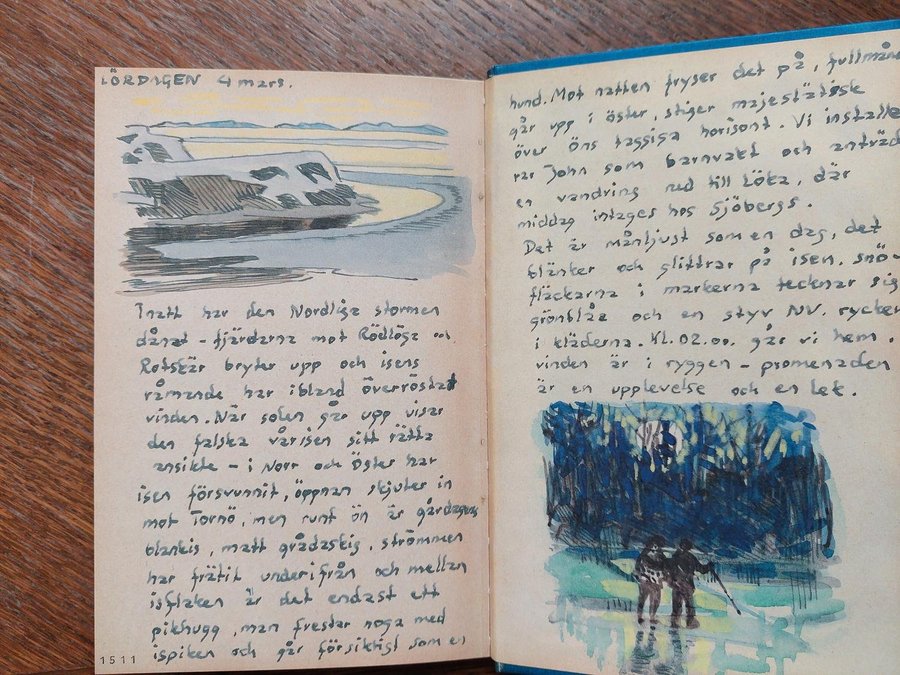 LÖRDAGEN 4 mars.
I natt har den Nordliga stormen
dånat - fjärdarna mot Rödlöga och
Rotskär bryter upp och isens
råmande har ibland överröstat
vinden. När solen går upp visar
den falska vårisen sitt rätta
ansikte - i Norr och Öster har
isen försvunnit, öppnan skjuter in
mot Tornö, men runt ön är gårdagens
blankis, matt grådaskig, strömmen
har frätit underifrån och mellan
isflaken är det endast ett
pikhugg, man frestar noga med
ispiken och går försiktigt som en
1511
hund. Mot natten fryser det på, fullmåne
går upp i öster, stiger majestätisk
över öns taggiga horisont. Vi installe
rar John som barnvakt och anträd
en vandring ned till Löka, där
middag intages hos Sjöbergs.
Det är månljust som en dag, det
blänker och glittrar på isen. snö-
fläckarna i markerna tecknar sig
grönblåa och en styv NV. rycker
i kläderna. Kl. 02.00. går vi hem.
vinden är i ryggen - promenaden
är en upplevelse och en lek.